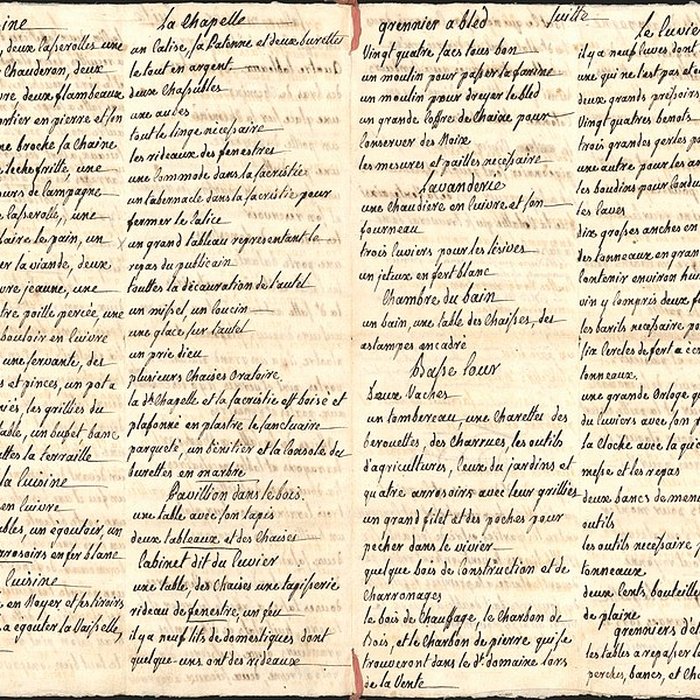 ine
, deux Casserolles une
Chauderon, deux
vre, deux flambeaux
ortier en pierre et son
ne broche sa Chaine
lechefritte une
ours de Campagne
Casserolle, une
faire le pain, un
er la viande, deux
vre jeaune, une
tre poille percée une
bouloir en Cuivre
une servante, des
s et pinces, un pot a
riés, les grilliés du
table, un bufet banc
uttes la terraille
la Cuisine
en Cuivre
ables, un egoutoir, un
arrosoirs en fer blanc
Cuisine
e en Noyer et ses tiroirs
a egouter la Vaisselle,
La Chapelle
un Calise, sa Patenne et deux burettes
le tout en argent.
deux Chasubles
une aubes
tout le linge necessaire
les rideaux des fenestres
une Commode dans la sacristie
un tabernacle dans la sacristie pour
fermer le Calice
un grand tableau representant le
repas du publicain
touttes la décauration de l'autel
un missel, un coucin
une glace sur l'autel
un prie dieu
plusieurs Chaises Oratoire,
la de Chapelle et la sacristie est boisé et
plafonné en plastre le sanctuaire
parqueté, un bénitier et la Console des
burettes en marbre
Pavillion dans le bois.
une table avec son tapis
deux tableaux et des Chaises
Cabinet dit du Cuvier
une table, des Chaises une tapisserie
rideau de fenestre, un feu
il y a neuf lits de domestiques dont
quelque uns ont des rideaux
grennier a bled
Suitte
Vingt quatre sacs tous bon
un moulin pour passer la farine
un moulin pour dreyer le bled
un grande Coffre de Chaine pour
Conserver des Noix
les mesures et pailles necessaire
Lavanderie
une Chaudiere en Cuivre et son
fourneau
trois Cuviers pour les lesives
un jeteux en fert blanc
Chambre du bain
un bain, une table des Chaises, des
estampes encadré
Basse Cour
Deux Vaches
un tombereau, une Charettes des
berouettes, des Charrues, les outils
d'agricultures, Ceux du jardins et
quatre arrosoirs avec leur grilliés
un grand filet et des poches pour
pecher dans le vivier
quelque bois de Construction et de
Charronages
le bois de Chauffage, le Charbon de
Bois, et le Charbon de pierre qui se
trouveront dans le dt domaine lors
de la Vente
Le Cuvie
il y a neuf Cuves dont
une qui ne l'est pas et
deux grands pressoirs
Vingt quatres benots
trois grandes gerles po
une autre pour les
les boudins pour Cord
les Caves
dix grosses anches en
des tonneaux en gran
Contenir environ hui
vin y Compris deux
les barils necessaire po
six Cercles de fert a
tonneaux.
une grande Orloge q
du Cuviers avec son
la Cloche avec la que
messe et les repas
deux bancs de men
outils
les outils necessaire p
tonneaux
deux Cents bouteille
de plaine
grenniers d'et
les tables a repasser l
perches, bancs, et